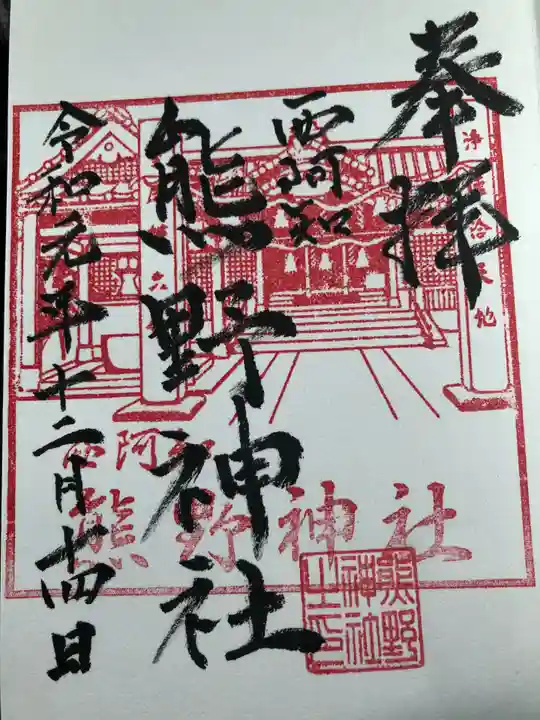 奉拝
西阿知
熊野神社
令和元年十二月十四日
熊野神社
熊野
神社
之印